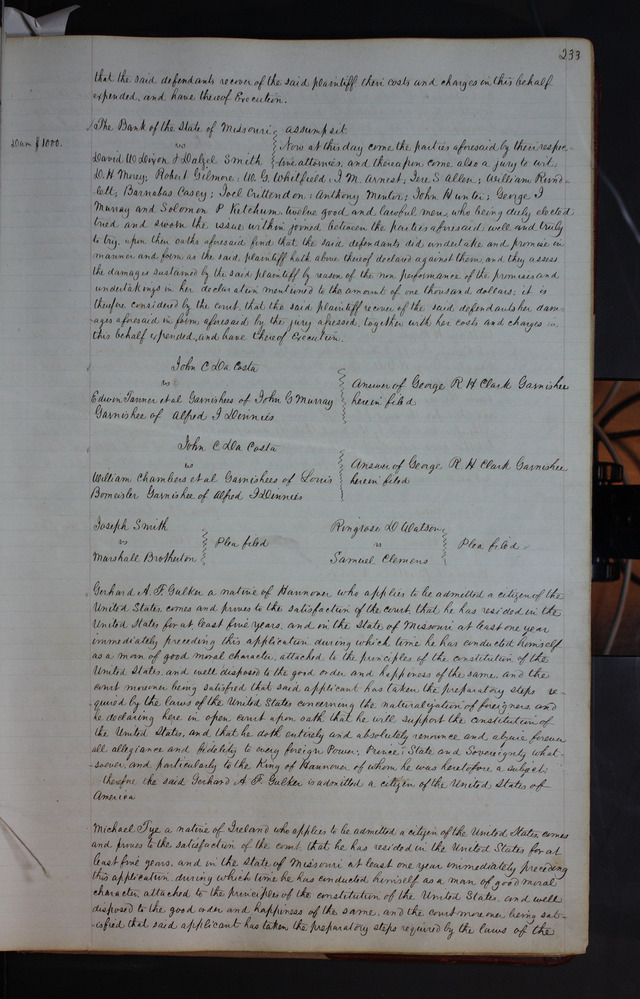 233
that the said defendants recover of the said plaintiff their costs and charges in this behalf
expended, and have thereof Execution.
The Bank of the State of Missouri } assumpsit
vs } Now at this day come the parties aforesaid by their respec-
Dam $1000.
David W Dixon & Dalzel Smith } tive attornies, and thereupon come also a jury to wit;
D. H Morey; Robert Gilmore; W. G. Whitfield; I. M. Arnest; Jere S Allen; William Rund-
lett; Barnabas Casey; Joel Crittendon; Anthony Minter; John Hunter; George I
Murray and Solomon P Ketchum. twelve good and lawful men, who being duly elected
tried and sworn the issue within joined between the parties aforesaid well and truly
to try, upon their oaths aforesaid find that the said defendants did undertake and promise in
manner and form as the said plaintiff hath above thereof declared against them, and they assess
the damages sustained by the said plaintiff by reason of the non performance of the promises and
undertakings in her declaration mentioned to the amount of one thousand dollars; it is
therefore considered by the court that the said plaintiff recover of the said defendants her dam-
ages aforesaid in form aforesaid by the jury assessed, together with her costs and charges in
this behalf expended, and have thereof Execution.
John C Da Costa
vs } Answer of George R H Clark Garnishee
Edwin Tanner et al Garnishees of John C Murray } herein filed
Garnishee of Alfred I Dennies
John C Da Costa
vs } Answer of George R. H Clark Garnishee
William Chambers et al Garnishees of Louis } herein filed
Bomeisler Garnishee of Alfred I Dennies
Joseph Smith
vs } Plea filed
Marshall Brotherton
Ringrose D Watson
vs } Plea filed.
Samuel Clemens
Gerhard A. F. Gulker a native of Hannover who applies to be admitted a citizen of the
United States, comes and proves to the satisfaction of the court, that he has resided in the
United States for at least five years, and in the State of Missouri at least one year
immediately preceding this application during which time he has conducted himself
as a man of good moral character, attached to the principles of the constitution of the
United States, and well disposed to the good order and happiness of the same, and the
court moreover being satisfied that said applicant has taken the preparatory steps re-
quired by the laws of the United States concerning the naturalization of foreigners, and
he declaring here in open court upon oath, that he will support the constitution of
the United States, and that he doth entirely and absolutely renounce and abjure forever
all allegiance and fidelity to every foreign Power, Prince, State and Sovereignty what-
-soever, and particularly to the King of Hannover of whom he was heretofore a subject;
therefore the said Gerhard A F Gulker is admitted a citizen of the United States of
America
Michael Tye a native of Ireland who applies to be admitted a citizen of the United States, comes
and proves to the satisfaction of the court, that he has resided in the United States for at
least five years, and in the State of Missouri at least one year immediately preceding
this application during which time he has conducted himself as a man of good moral
character attached to the principles of the constitution of the United States, and well
disposed to the good order and happiness of the same, and the court moreover being sat-
-isfied that said applicant has taken the preparatory steps required by the laws of the